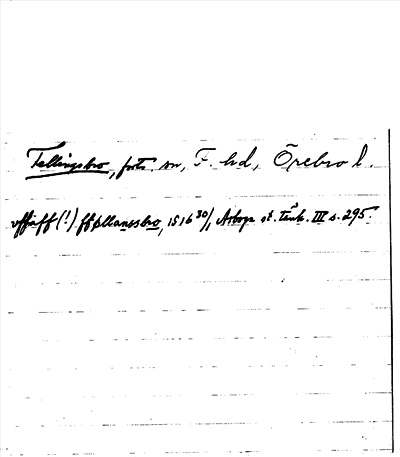 Fellingsbro, forts. sn, F. hd, Örebro l.
vffäff (!) ffællanssbro, 1516 30/1, Arboga st. tänk. III s. 295.